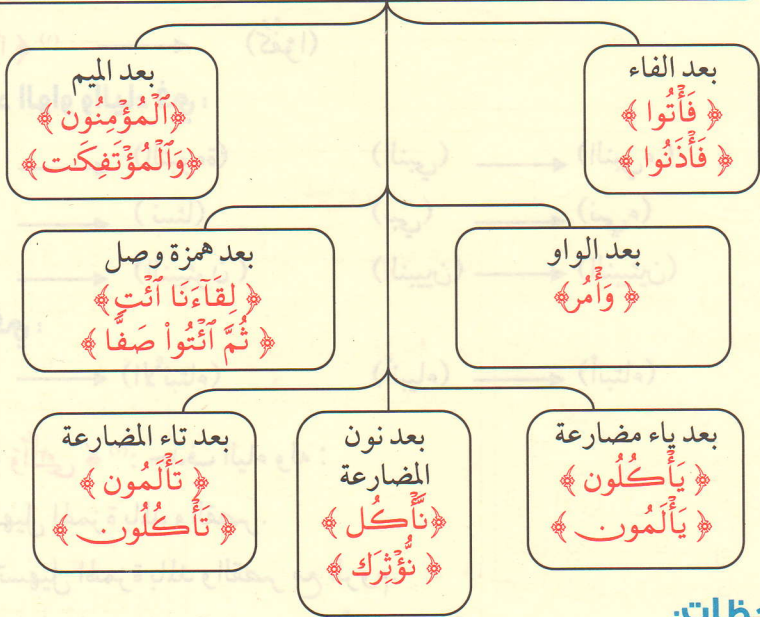 بعد الفاء
﴿ فَأْتُوا ﴾
﴿ فَأْذَنُوا ﴾
بعد الميم
﴿ ٱلْمُؤْمِنُون ﴾
﴿ وَٱلْمُؤْتَفِكَٰت ﴾
بعد الواو
﴿ وَأْمُر ﴾
بعد همزة وصل
﴿ لِقَآءَنَا ٱئْتِ ﴾
﴿ ثُمَّ ٱئْتُواْ صَفًّا ﴾
بعد ياء مضارعة
﴿ يَأْكُلُون ﴾
﴿ يَأْلَمُون ﴾
بعد نون
المضارعة
﴿ نَّأْكُل ﴾
﴿ نُّؤْثِرَك ﴾
بعد تاء المضارعة
﴿ تَأْلَمُون ﴾
﴿ تَأْكُلُون ﴾